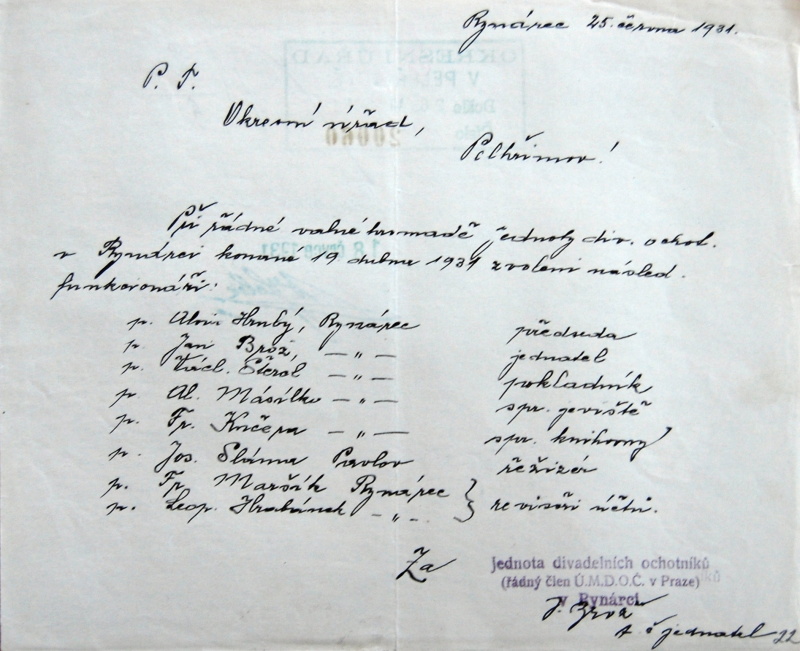 Rynárec 25. června 1931.
P. T.
Okresní úřad,
Pelhřimov!
Při řádné valné hromadě jednoty div. ochot.
v Rynárci konané 19 dubna 1931 zvoleni násled.
funkcionáři:
p. Alois Hrubý, Rynárec předseda
p. Jan Brož, — „ — jednatel
p. Václ. — „ — pokladník
p. Al. — „ — spr. jeviště
p. Fr. Kučera — „ — spr. knihovny
p. Jos. Sláma Pavlov režizér
p. Fr. Maršík Rynárec
p. Leop. — „ — revisoři účtů.
Za
Jednota divadelních ochotníků
(řádný člen Ú.M.D.O.Č. v Praze)
v Rynárci
J. Brož
t. č. jednatel
22